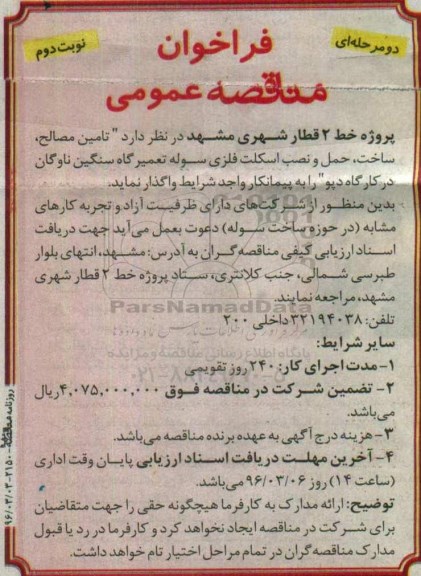 دو مرحله‌ای
نوبت دوم
فراخوان
مناقصه عمومی
پروژه خط ۲ قطار شهری مشهد در نظر دارد " تامین مصالح،
ساخت، حمل و نصب اسکلت فلزی سوله تعمیرگاه سنگین ناوگان
در کارگاه دپو" را به پیمانکار واجد شرایط واگذار نماید.
بدین منظور از شرکت‌های دارای ظرفیت آزاد و تجربه کارهای
مشابه (در حوزه ساخت سوله) دعوت بعمل می‌آید جهت دریافت
اسناد ارزیابی کیفی مناقصه‌گران به آدرس: مشهد، انتهای بلوار
طبرسی شمالی، جنب کلانتری، ستاد پروژه خط ۲ قطار شهری
مشهد، مراجعه نمایند.
تلفن: ۳۲۱۹۴۰۳۸ داخلی ۲۰۰
سایر شرایط:
۱- مدت اجرای کار: ۲۴۰ روز تقویمی
۲- تضمین شرکت در مناقصه فوق ۴,۰۷۵,۰۰۰,۰۰۰ ریال
می‌باشد.
۳- هزینه درج آگهی به عهده برنده مناقصه می‌باشد.
۴- آخرین مهلت دریافت اسناد ارزیابی پایان وقت اداری
(ساعت ۱۴) روز ۹۶/۰۳/۰۶ می‌باشد.
توضیح: ارائه مدارک به کارفرما هیچگونه حقی را جهت متقاضیان
برای شرکت در مناقصه ایجاد نخواهد کرد و کارفرما در رد یا قبول
مدارک مناقصه‌گران در تمام مراحل اختیار تام خواهد داشت.
ParsNamadData
پایگاه اطلاع رسانی مناقصه و مزایده
روزنامه مناقصه ۲۱۵۰-۹۶/۰۳/۰۳